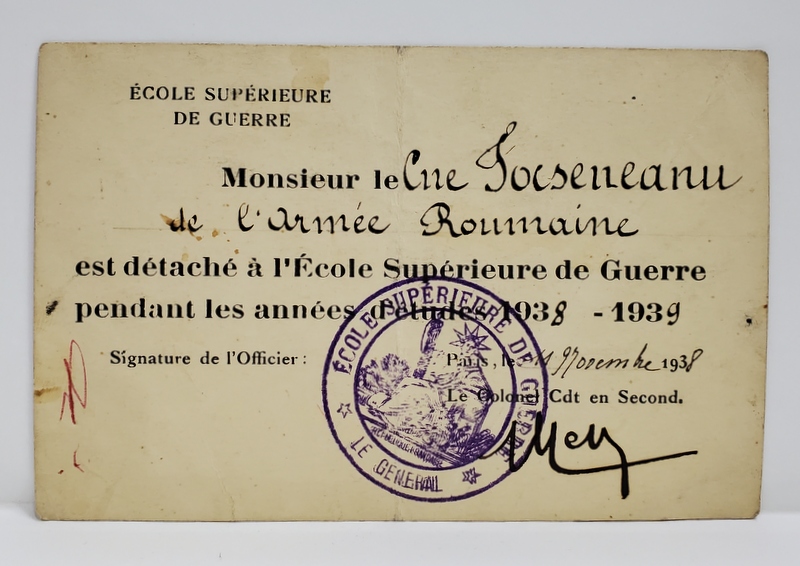 ÉCOLE SUPÉRIEURE
DE GUERRE
Monsieur le Cne Focseneanu
de l'Armée Roumaine
est détaché à l'École Supérieure de Guerre
pendant les années d'études 1938 - 1939
Signature de l'Officier :
Paris, le Novembre 1938
Le Colonel Cdt en Second.
ÉCOLE SUPÉRIEURE DE GUERRE
LE GENERAL